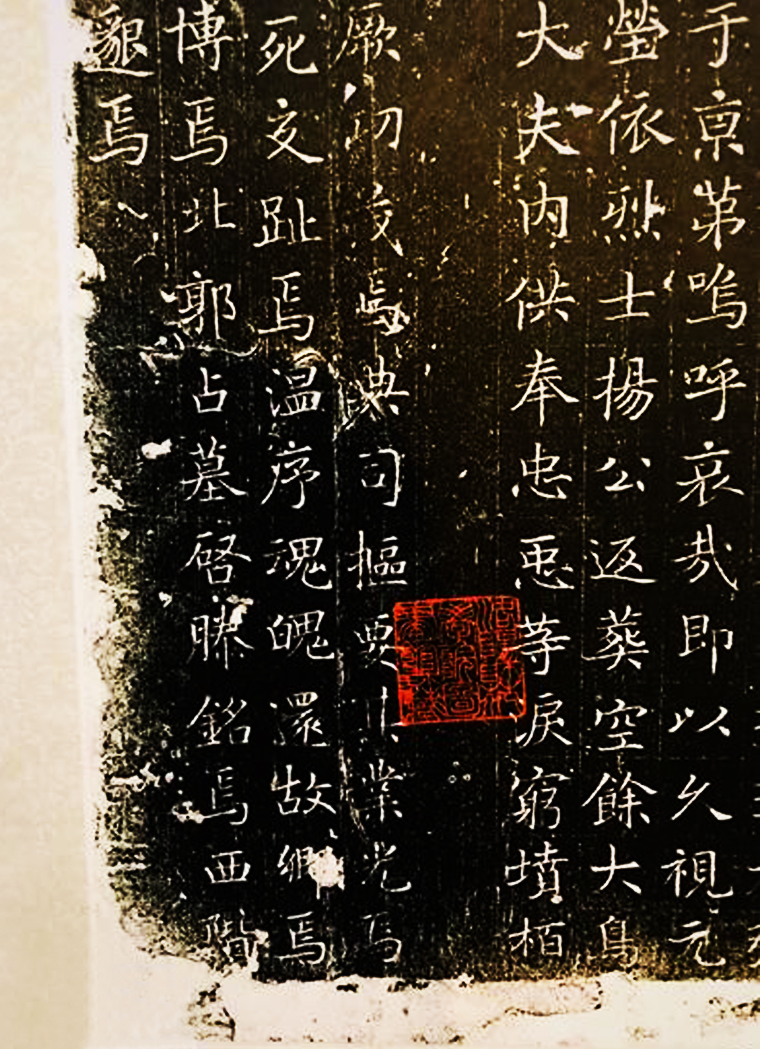 于京第嗚呼哀哉即以久視元
塋依烈士揚公返葬空餘大鳥
大夫內供奉忠惡等淚窮墳栢
厥功茂焉典司摳要業光焉
死友趾焉温序魂魄還故鄉焉
博焉北郭占墓啓銘焉西階
邈焉